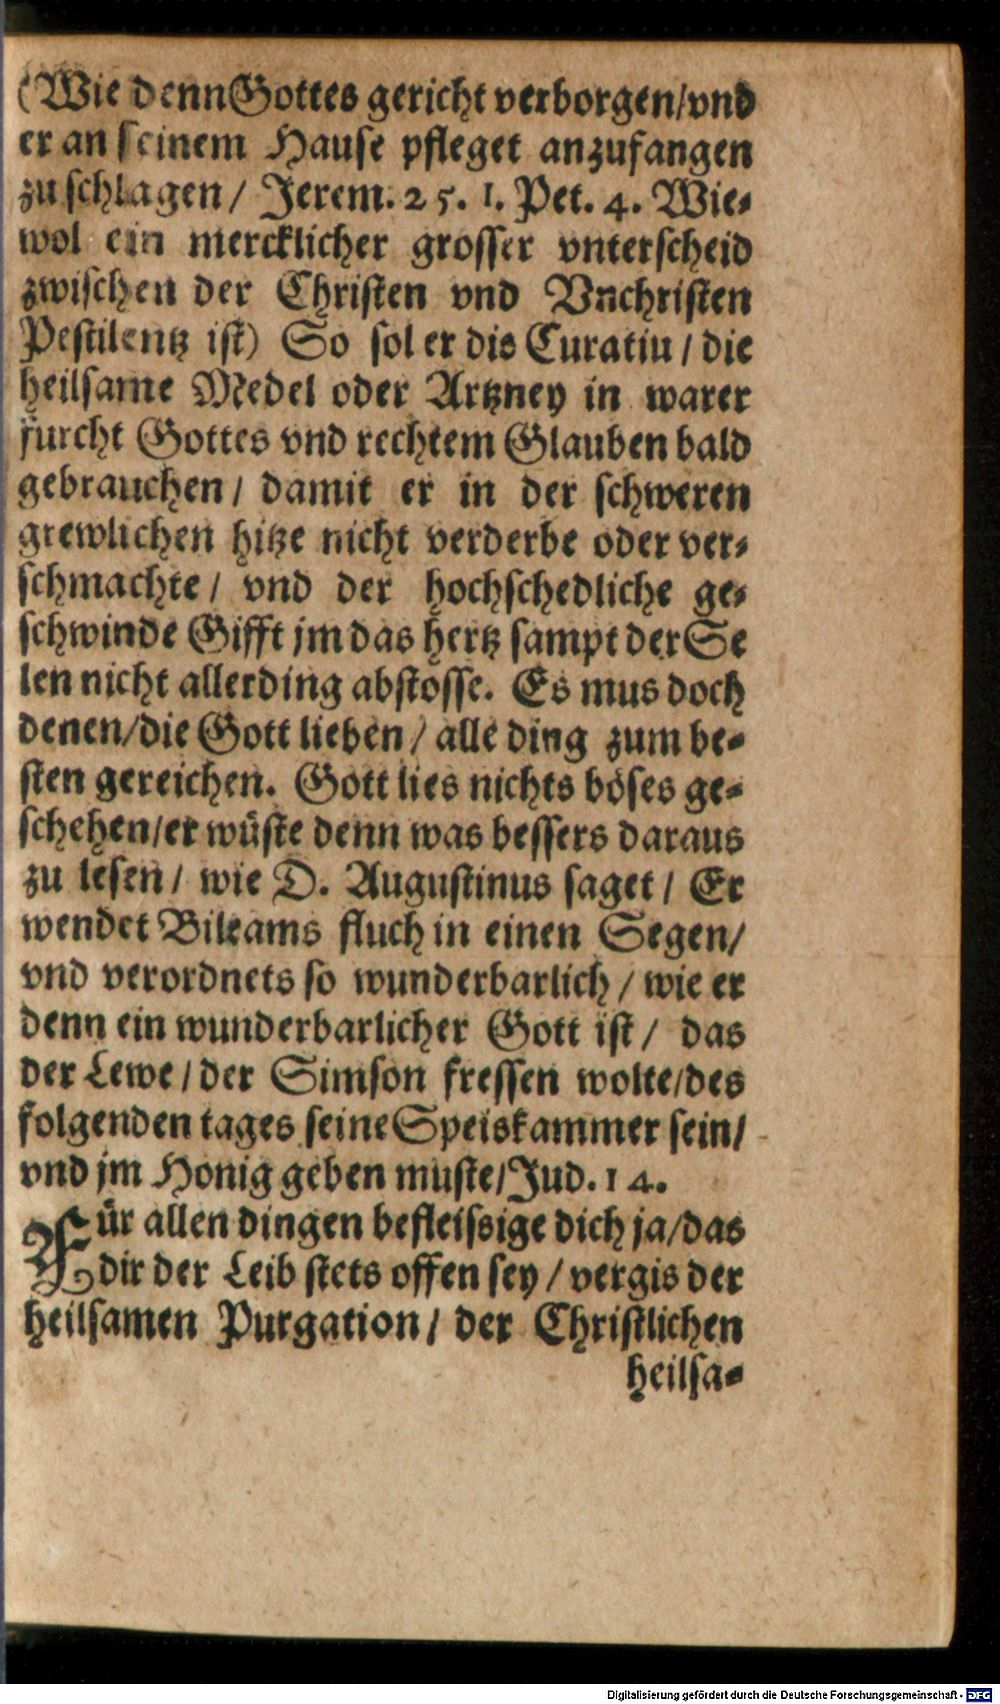 (Wie denn Gottes gericht verborgen/vnd
er an seinem Hause pfleget anzufangen
zu schlagen/ Jerem. 25. 1. Pet. 4. Wie-
wol ein mercklicher grosser vnterscheid
zwischen der Christen vnd Vnchristen
Pestilentz ist) So sol er dis Curatiu/ die
heilsame Medel oder Artzney in warer
furcht Gottes vnd rechtem Glauben bald
gebrauchen/ damit er in der schweren
grewlichen hitze nicht verderbe oder ver-
schmachte/ vnd der hochschedliche ge-
schwinde Gifft jm das hertz sampt der Se
len nicht allerding abstosse. Es mus doch
denen/die Gott lieben/ alle ding zum be-
sten gereichen. Gott lies nichts böses ge-
schehen/er wüste denn was bessers daraus
zu lesen/ wie D. Augustinus saget/ Er
wendet Bileams fluch in einen Segen/
vnd verordnets so wunderbarlich/ wie er
denn ein wunderbarlicher Gott ist/ das
der Lewe/der Simson fressen wolte/des
folgenden tages seine Speiskammer sein/
vnd jm Honig geben muste/Jud. 14.
Für allen dingen befleissige dich ja/das
dir der Leib stets offen sey/ vergis der
heilsamen Purgation/ der Christlichen
heilsa-
Digitalisierung gefördert durch die Deutsche Forschungsgemeinschaft - DFG